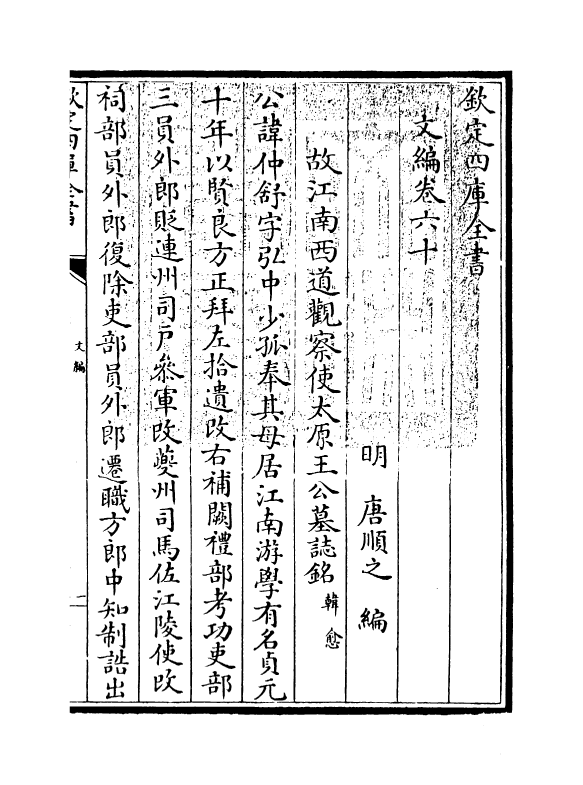 欽定四庫全書
文編卷六十
明　唐順之　編
故江南西道觀察使太原王公墓誌銘 韓愈
公諱仲舒字弘中少孤奉其母居江南游學有名貞元
十年以賢良方正拜左拾遺改右補闕禮部考功吏部
三員外郎貶連州司戶叅軍改夔州司馬佐江陵使改
祠部員外郎復除吏部員外郎遷職方郎中知制誥出
欽定四庫全書
文編